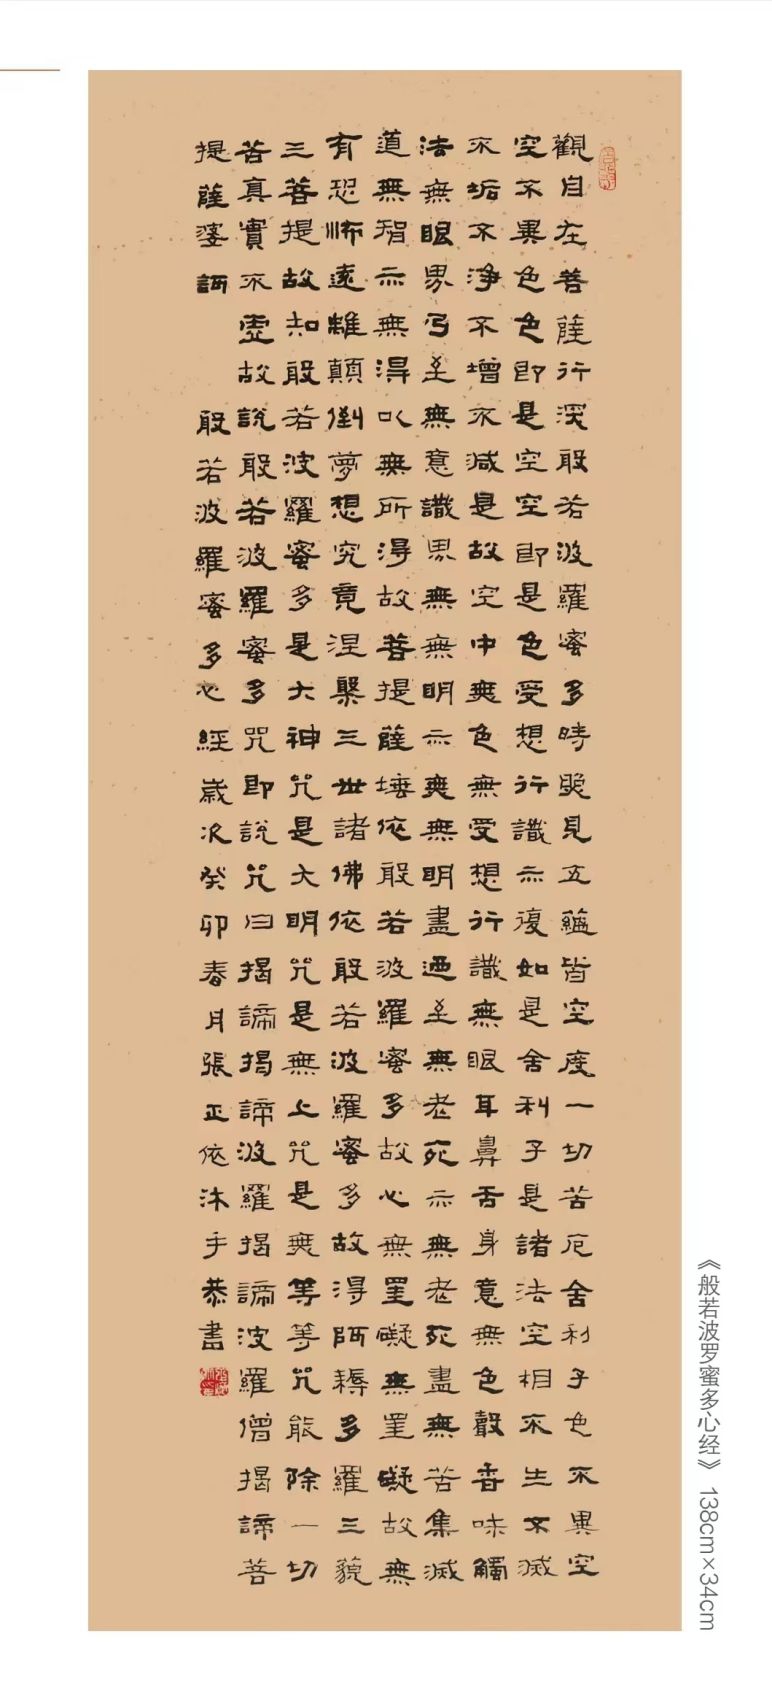 觀自在菩薩行深般若波羅蜜多時照見五蘊皆空度一切苦厄舍利子色不異空
空不異色色即是空空即是色受想行識亦復如是舍利子是諸法空相不生不滅
不垢不淨不增不減是故空中無色無受想行識無眼耳鼻舌身意無色聲香味觸
法無眼界乃至無意識界無無明亦無無明盡迺至無老死亦無老死盡無苦集滅
道無智亦無得以無所得故菩提薩埵依般若波羅蜜多故心無罣礙無罣礙故無
有恐怖遠離顛倒夢想究竟涅槃三世諸佛依般若波羅蜜多故得阿耨多羅三藐
三菩提故知般若波羅蜜多是大神咒是大明咒是無上咒是無等等咒能除一切
苦真實不虛故說般若波羅蜜多咒即說咒曰揭諦揭諦波羅揭諦波羅僧揭諦菩
提薩婆訶 般若波羅蜜多心經歲次癸卯春月張正依沐手恭書
《般若波罗蜜多心经》 138cm×34cm